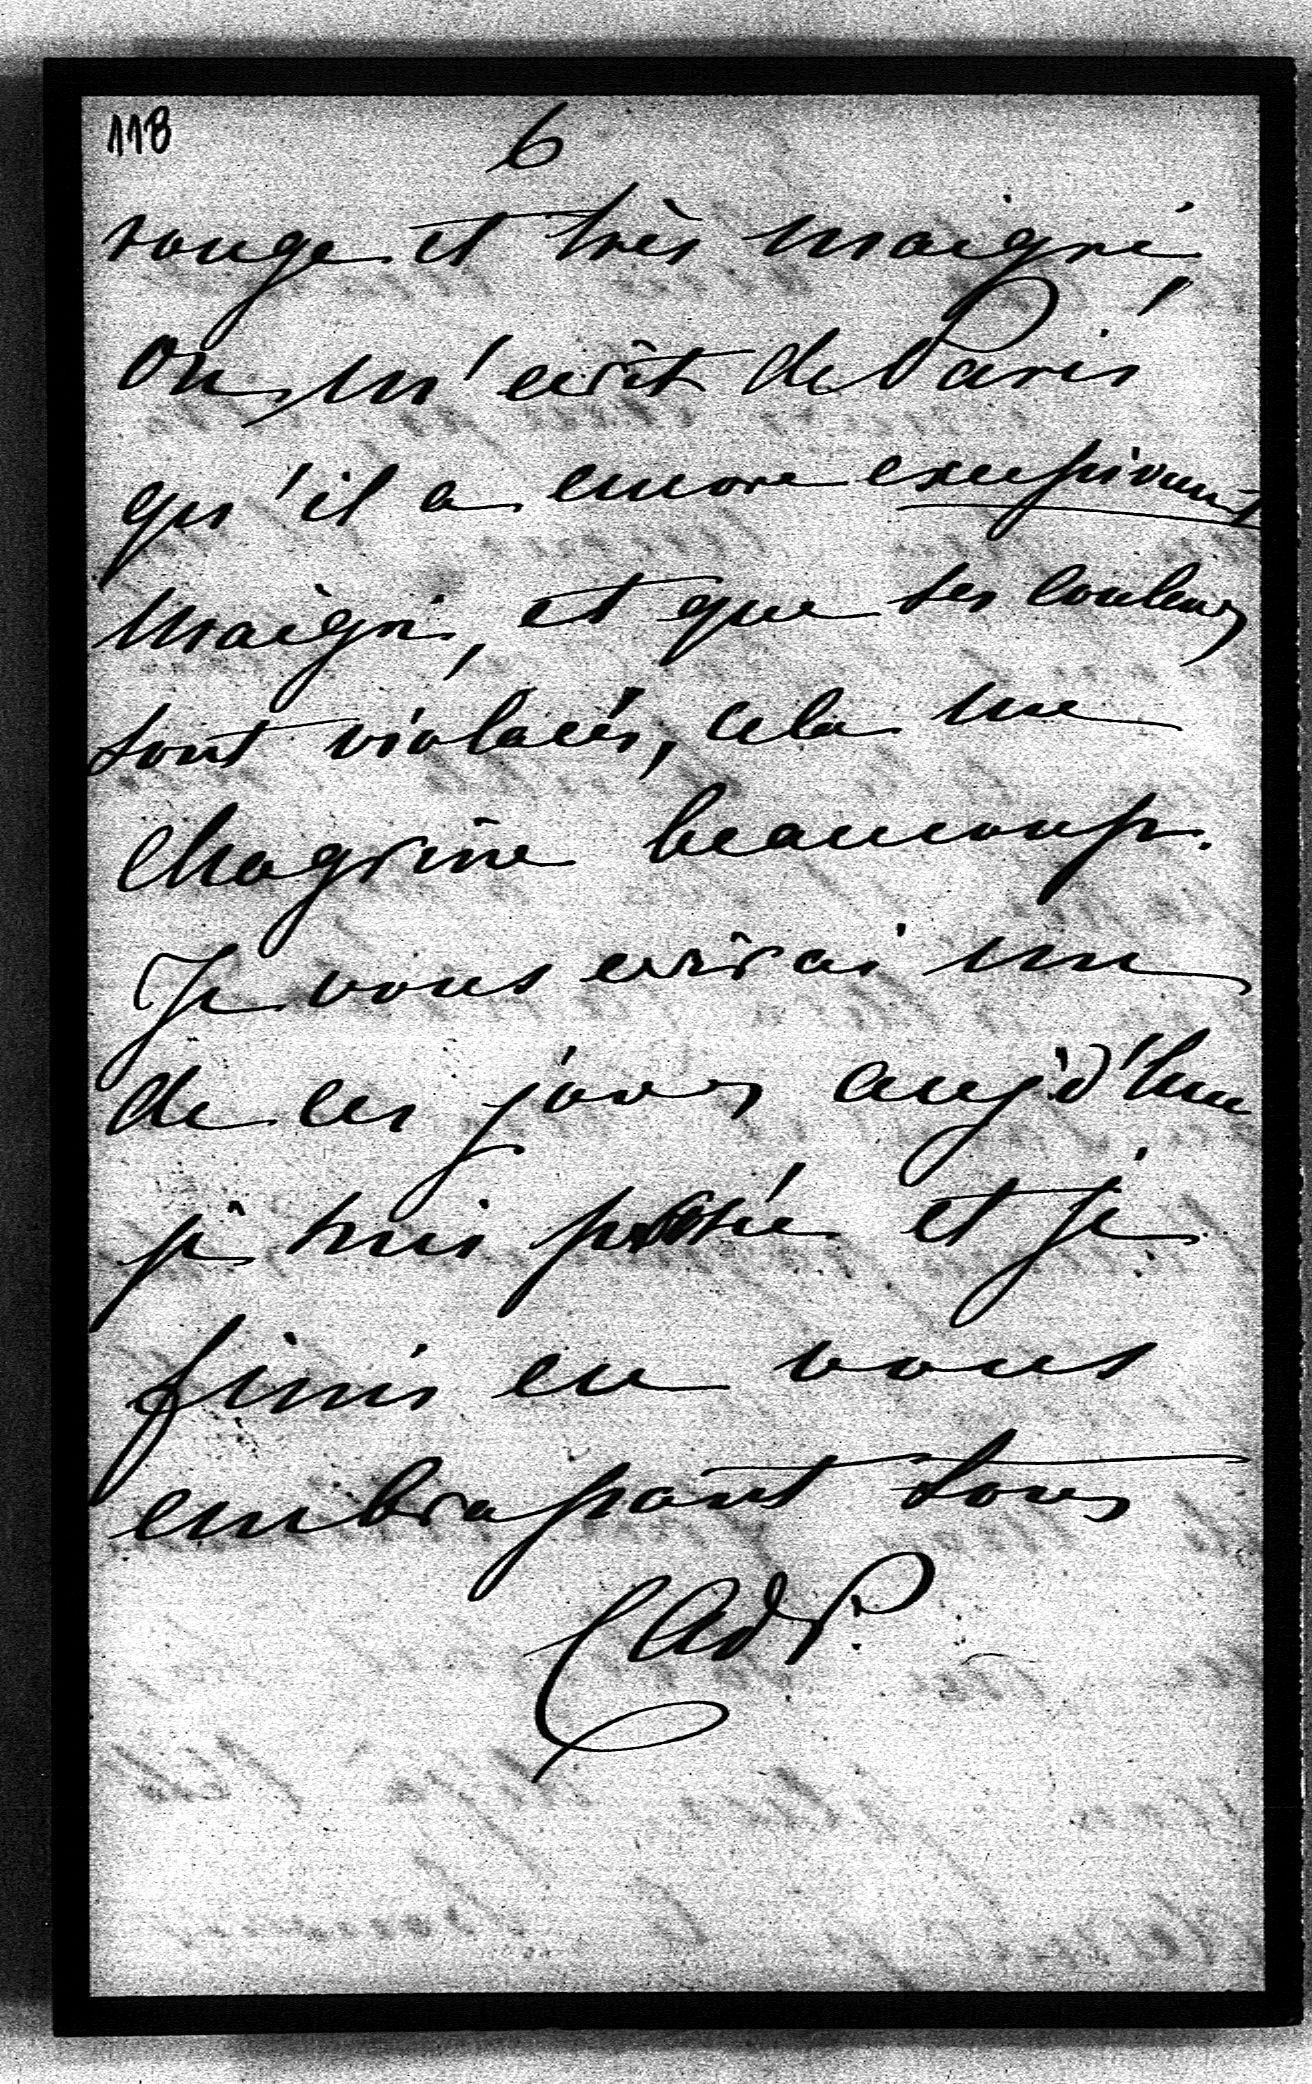 118
6
rouge et très maigri,
On m'écrit de Paris
qu'il a encore excessivement
maigri, et que ses couleurs
sont violacés, cela me
chagrine beaucoup.
Je vous ecrirai un
de ces jours aujd'hui
je suis pressée et je
finis en vous
embrassant tous
CAdP.